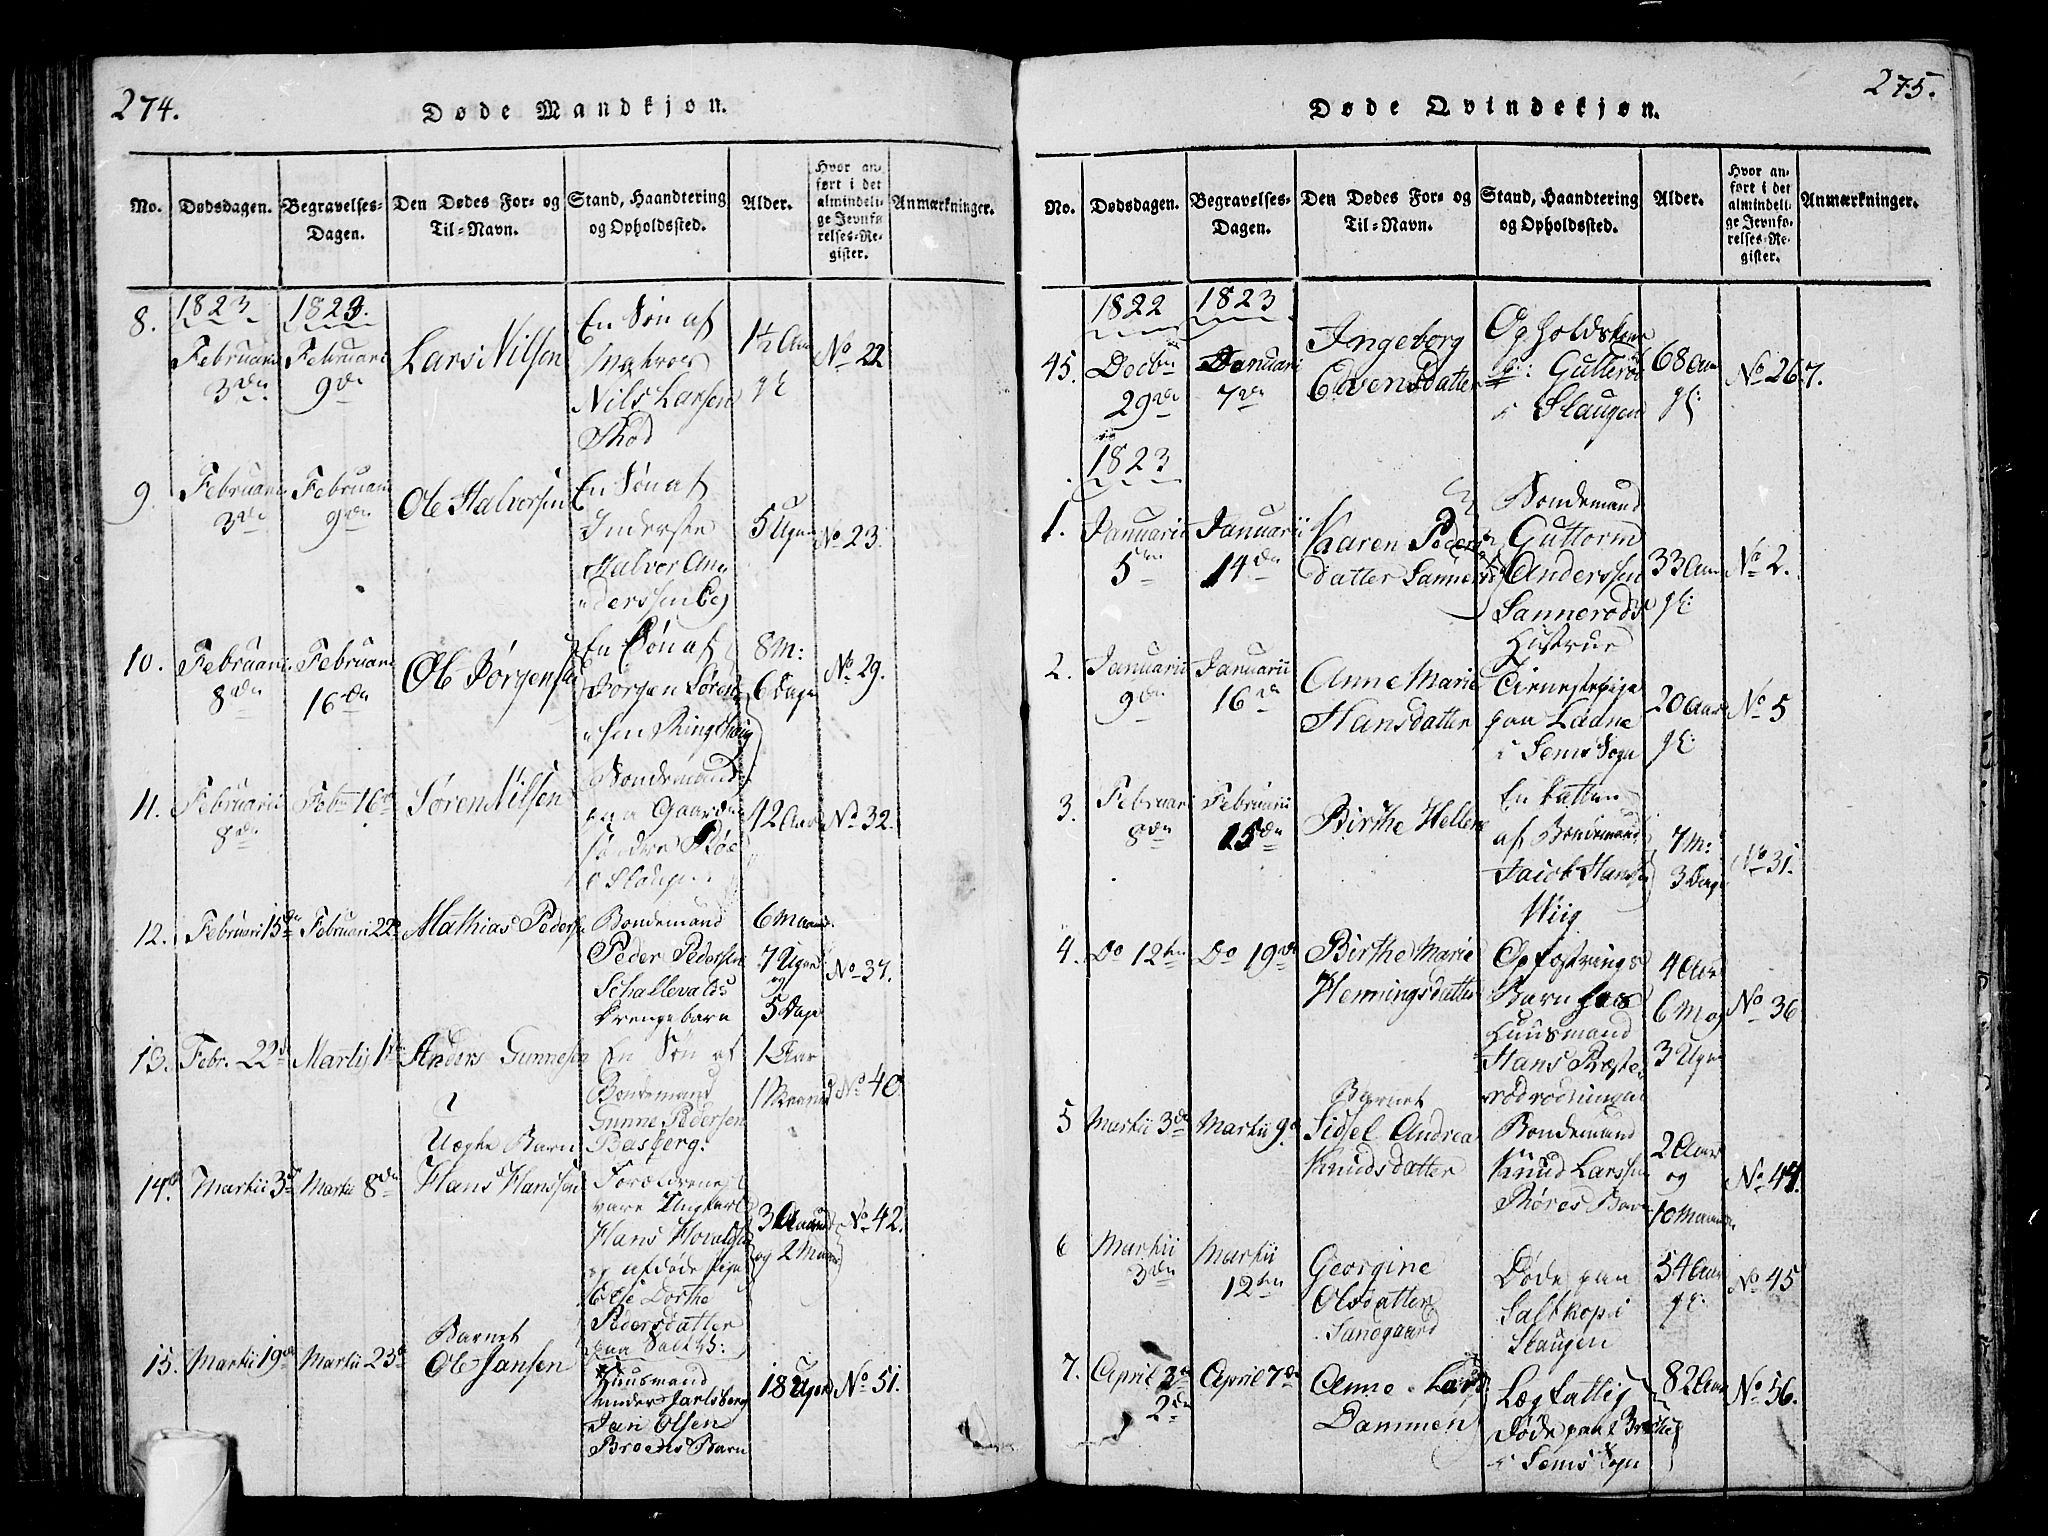 274.
Døde Mandkjøn.
No.
Dødsdagen.
Begravelses-
Dagen.
Den Dødes For- og
Til-Navn.
Stand, Haandtering
og Opholdssted.
Alder.
Hvor an-
ført i det
almindeli-
ge Jevnfø-
relses-Re-
gister.
Anmærkninger.
8.
1823
Februarii
3die
1823.
Februarii
9de
Lars Nilsen
En Søn af
Nils Larsen
Rød
1½ Aar
gl
No 22
9.
Februarii
3die
Februarii
9de
Ole Halvorsen
En Søn af
Inderste
Halvor An
derssen
5 Uger
No 23.
10.
Februarii
8de
Februarii
16de
Ole Jørgensen
En Søn af
Jørgen Søren
sen Ringshoug
8 M:
6 Dage
No 29.
11.
Februarii
8de
Febr 16de
Søren Nilsen
Bondemand
paa Gaarden
søndre Røe
i Slaugen
42 Aar
No 32.
12.
Februari 15de
Februari 22de
Mathias Pedersen
Bondemand
Peder Pedersen
Schallevolds
Drengebarn
6 Maaned
7 Uger
og
5 Dage
No 37.
13.
Febr. 22de
Martij 1ste
Anders Gunnesen
En Søn af
Bondemand
Gunne Pedersen
Basberg.
1 Aar
1 Maaned
No 40
14de
Martii 3de
Martii 8de
Uægte Barn
Hans Hanssen
Forældrene
vare Ungkarl
Hans
og afdøde Pige
Else Dorthe
Pedersdatter
3 Aar
og 2 Maaned
No 42.
15.
Martii 19de
Martii 23de
Barnet
Ole Jansen
Huusmand
under Jarlsberg
Jan Olsen
Broens Barn
18 Uger
No 51.
275.
Døde Qvindekjøn.
No.
Dødsdagen.
Begravelses-
Dagen.
Den Dødes For- og
Til-Navn.
Stand, Haandtering
og Opholdssted.
Alder.
Hvor an-
ført i det
almindeli-
ge Jevnfø-
relses-Re-
gister.
Anmærkninger.
45.
1822
Decbr
29de
1823
Januari
7de
Ingeborg
Evensdatter
Opholdskone
Gutterød
i Slaugen
68 Aar
gl:
No 267.
1823
1.
Januarii
5te
Januarii
14de
Kaaren Peders
datter Sannerød
Bondemand
Guttorm
Anderssen
Sannerøds
Hustrue
33 Aar
gl:
No 2.
2.
Januarii
9de
Januarii
16de
Anne Marie
Hansdatter
Tienestepige
paa
i Sems Sogn
20 Aar
gl:
No 5
3.
Februari
8de
Februarii
15de
Birthe Helene
En Datter
af Bondemand
Jacob Hansen
Viig
7 M:
3 Dage
No 31.
4.
Do 12te
Do 19de
Birthe Marie
Henningsdatter
Opfostrings
Barn hos
Huusmand
Hans Præste
rødrødningen
4 Aar
6 M og
3 Uger
No 36
5
Martii 3de
Martii 9de
Barnet
Sidsel Andrea
Knudsdatter
Bondemand
Knud Larssen
Røres Barn
2 Aar
og
10 Maaneder
No 44.
6
Martii
3de
Martii
12te
Georgine
Olsdatter
Sandgaard
Døde paa
Saltkop i
Slaugen
54 Aar
gl:
No 45
7.
April
2de
April 7de
Anne Lars
Dammen
Lægfattig
Døde paa
i Sems Sogn
82 Aar
No 56.